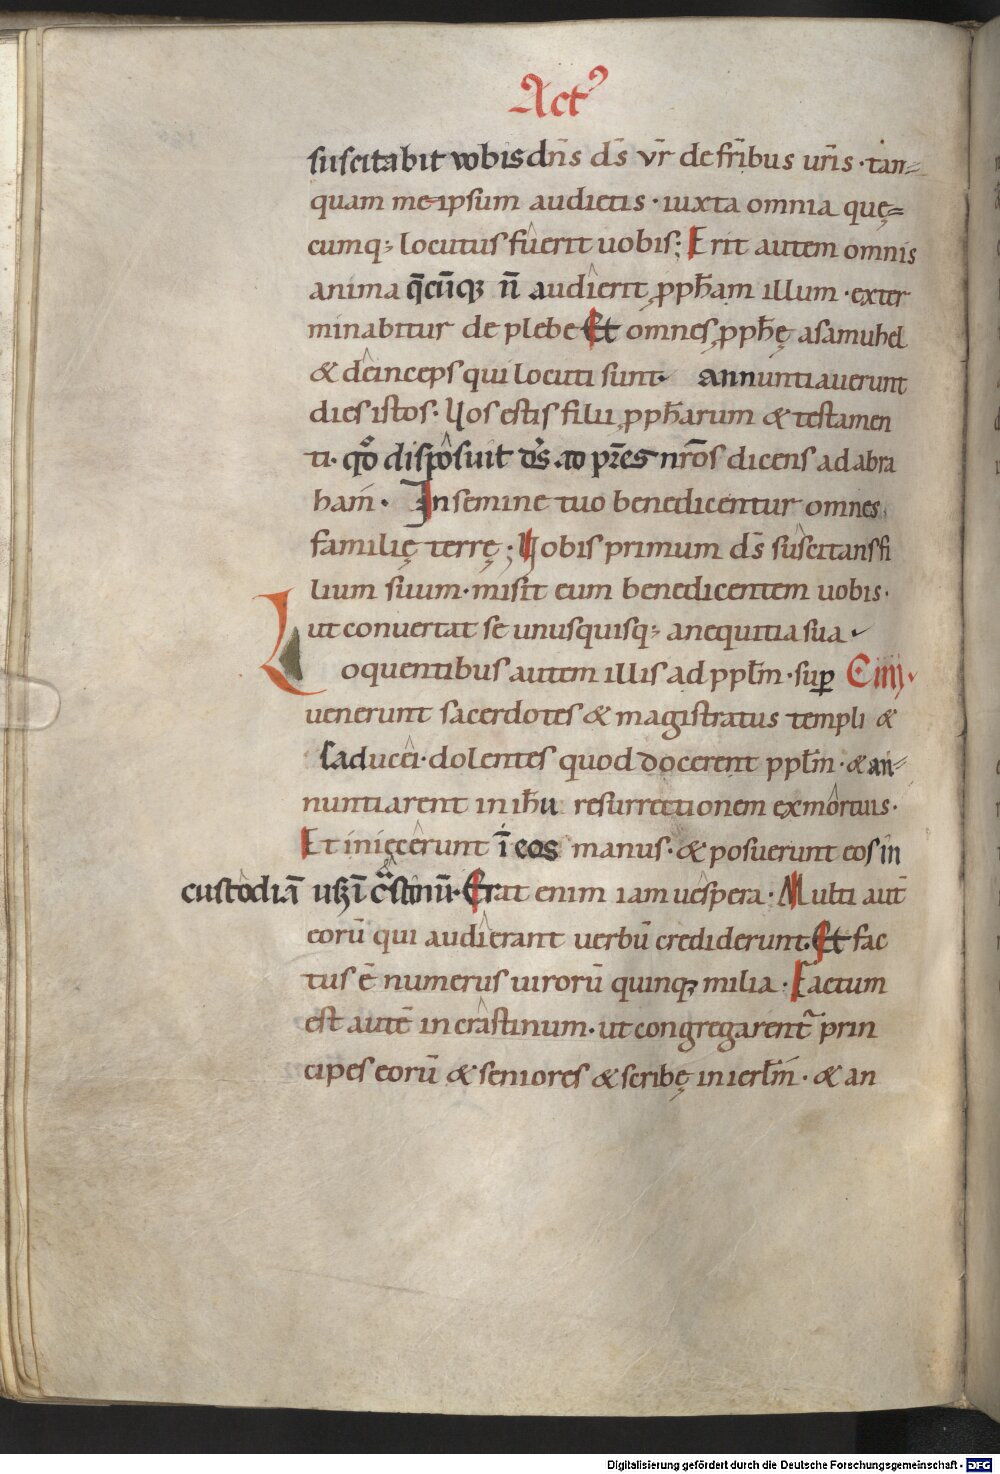 Act᾿
suscitabit vobis dn̄s ds̄ vr̄ de fr̄ibus urīs · tan⸗
quam me ipsum audietis · iuxta omnia quę⸗
cumq; locutus fuerit uobis; Erit autem omnis
anima q̄cūqꝫ n̄ audierit ꝓph̄am illum · exter
minabitur de plebe Et omnes ꝓph̄ę a samuhel
& deinceps qui locuti sunt · annuntiauerunt
dies istos · Uos estis filii ꝓph̄arum & testamen
ti · qͦd disposuit ds̄ ad pr̄es nr̄os dicens ad abra
ham̄ · In semine tuo benedicentur omnes
familię terrę; Uobis primum ds̄ suscitans fi
lium suum · misit eum benedicentem uobis ·
ut conuertat se unusquisq; a nequitia sua ·
Loquentibus autem illis ad ppl̄m · suꝑ C iiij ·
uenerunt sacerdotes & magistratus templi &
saducei · dolentes quod docerent ppl̄m · & an⸗
nuntiarent in ih̄u resurrectionem ex mortuis ·
Et iniecerunt ī eos manus · & posuerunt eos in
custodiā usqꝫ ī cᵃstinū · Erat enim iam uespera · Multi aut̄
eorū qui audierant uerbū crediderunt · Et fac
tus ē numerus uirorū quinqꝫ milia · Factum
est autē in crastinum · ut congregarent᷑ prin
cipes eorū & seniores & scribę in ierl̄m · & an
Digitalisierung gefördert durch die Deutsche Forschungsgemeinschaft - DFG